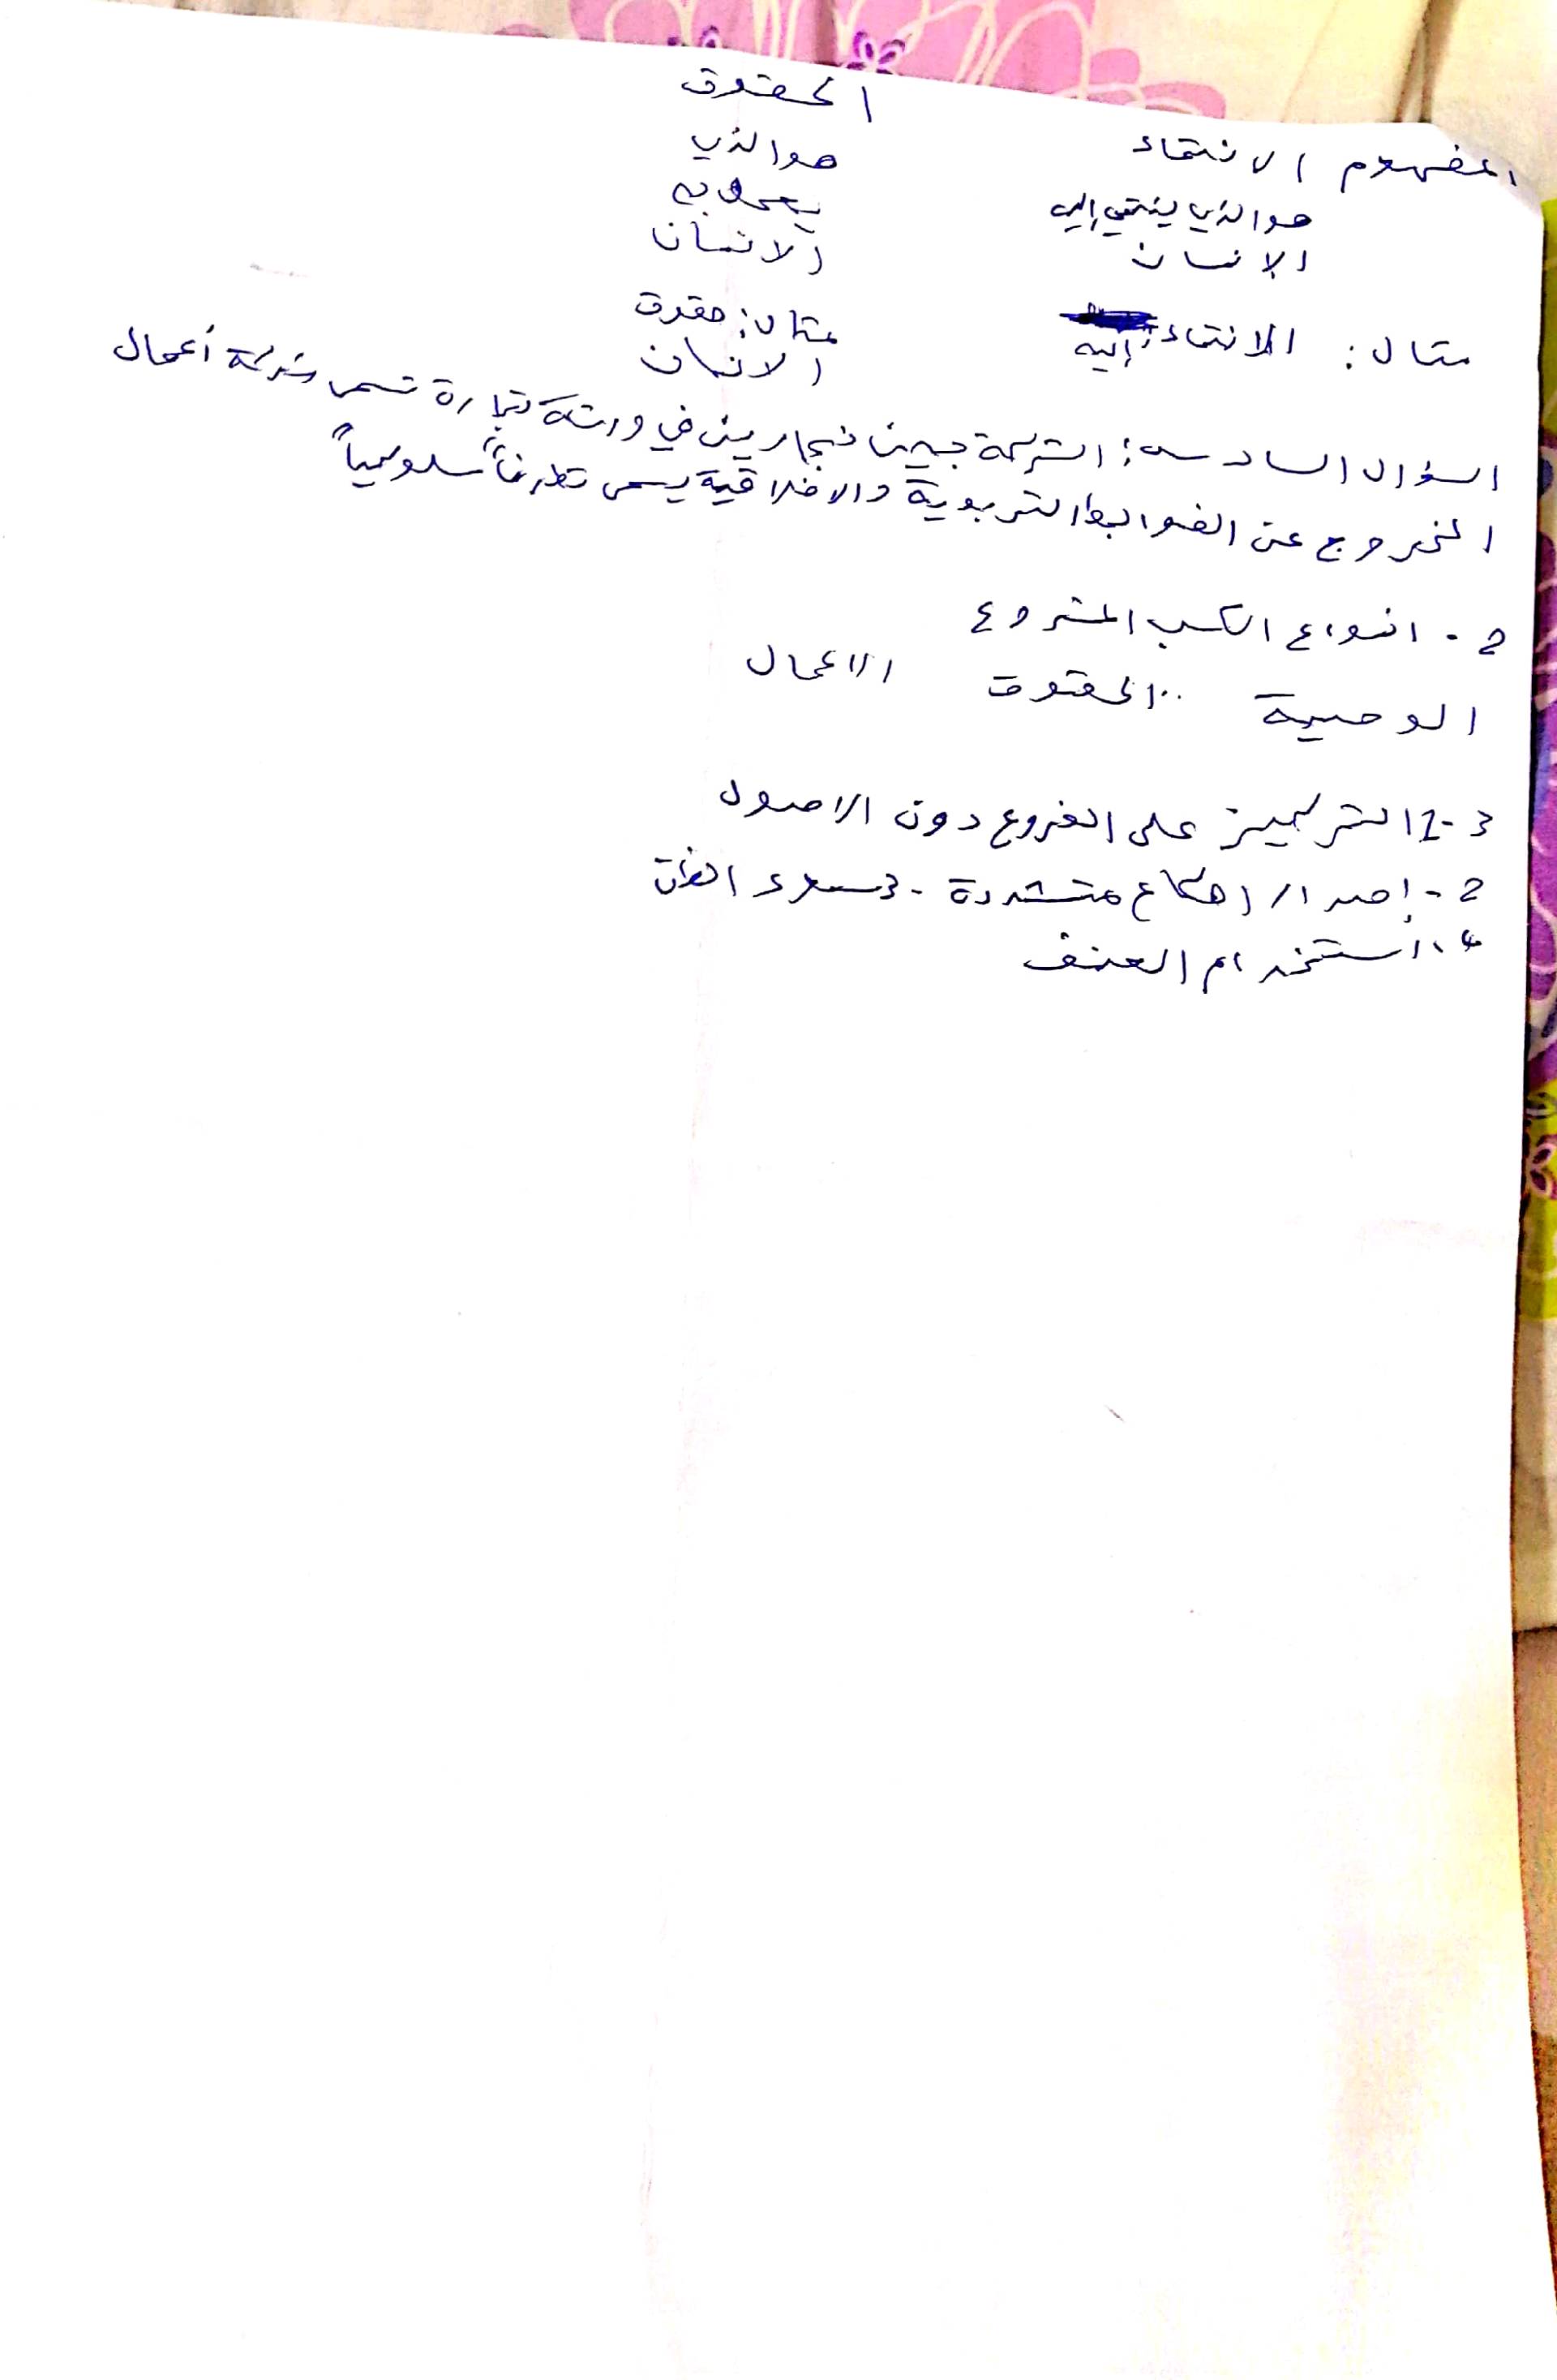 المفهوم الانتماء
الحقوق
هو الذي ينتمي إليه
هو الذي
الإنسان
يعمل به
الانسان
مثال: الانتماء إليه
مثال: حقوق
الانسان
السؤال السادس: الشركة بين نجارين في ورشة نجارة تسمى شركة أعمال
الخروج عن الضوابط التربوية والاخلاقية يسمى تطرفاً سلوكياً
2. انواع الكسب المشروع
الوصية الحقوق الاعمال
3-1 التركيز على الفروع دون الاصول
2- إصدار احكاع متشددة - 3 سوء الظن
4. استخدام العنف